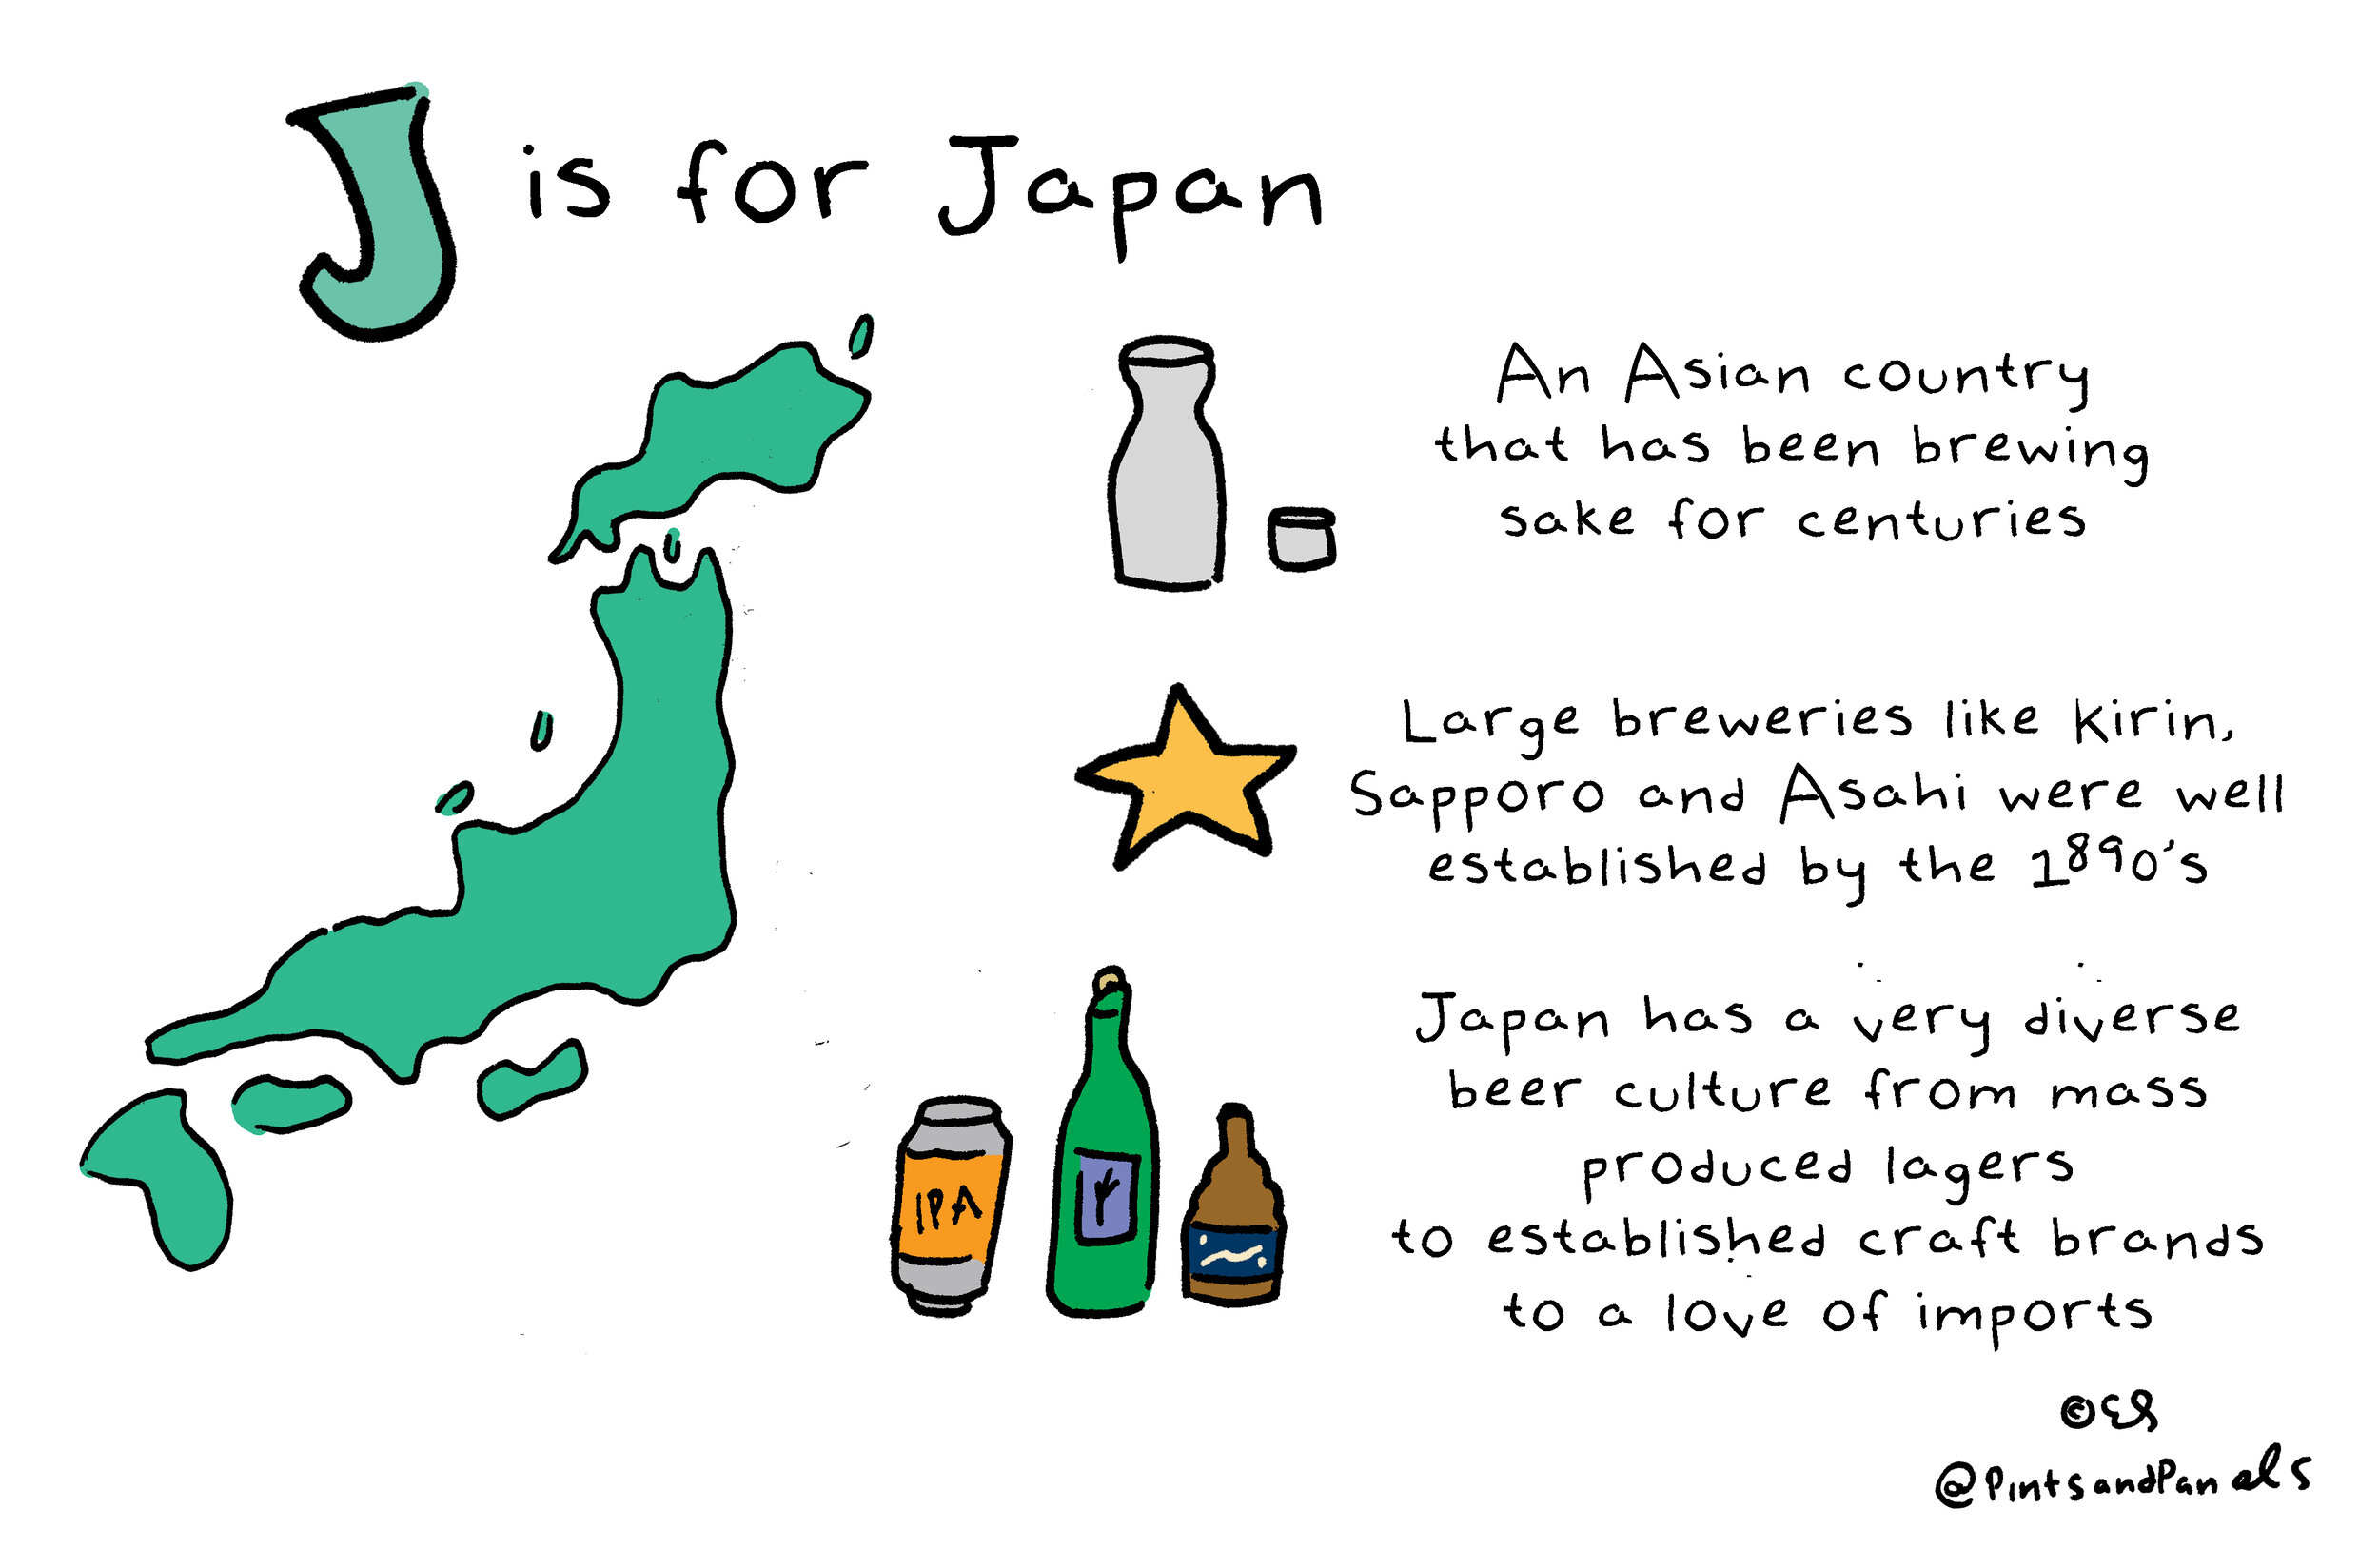 J is for Japan
An Asian country
that has been brewing
sake for centuries
Large breweries like Kirin,
Sapporo and Asahi were well
established by the 1890's
IPA
Japan has a very diverse
beer culture from mass
produced lagers
to established craft brands
to a love of imports
©ES
@PintsandPanels